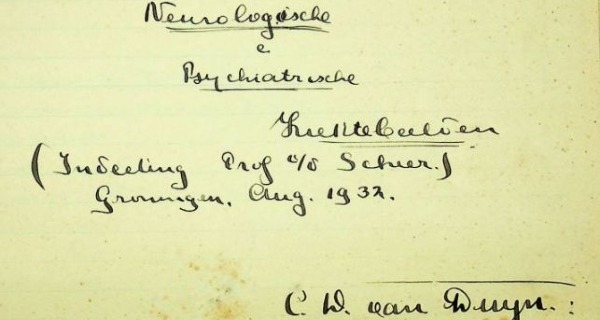 Neurologische
e
Psychiatrische
Ziektebeelden
(Indeeling Prof v/d Scheer.)
Groningen, Aug. 1932.
C. W. van Duyn.: